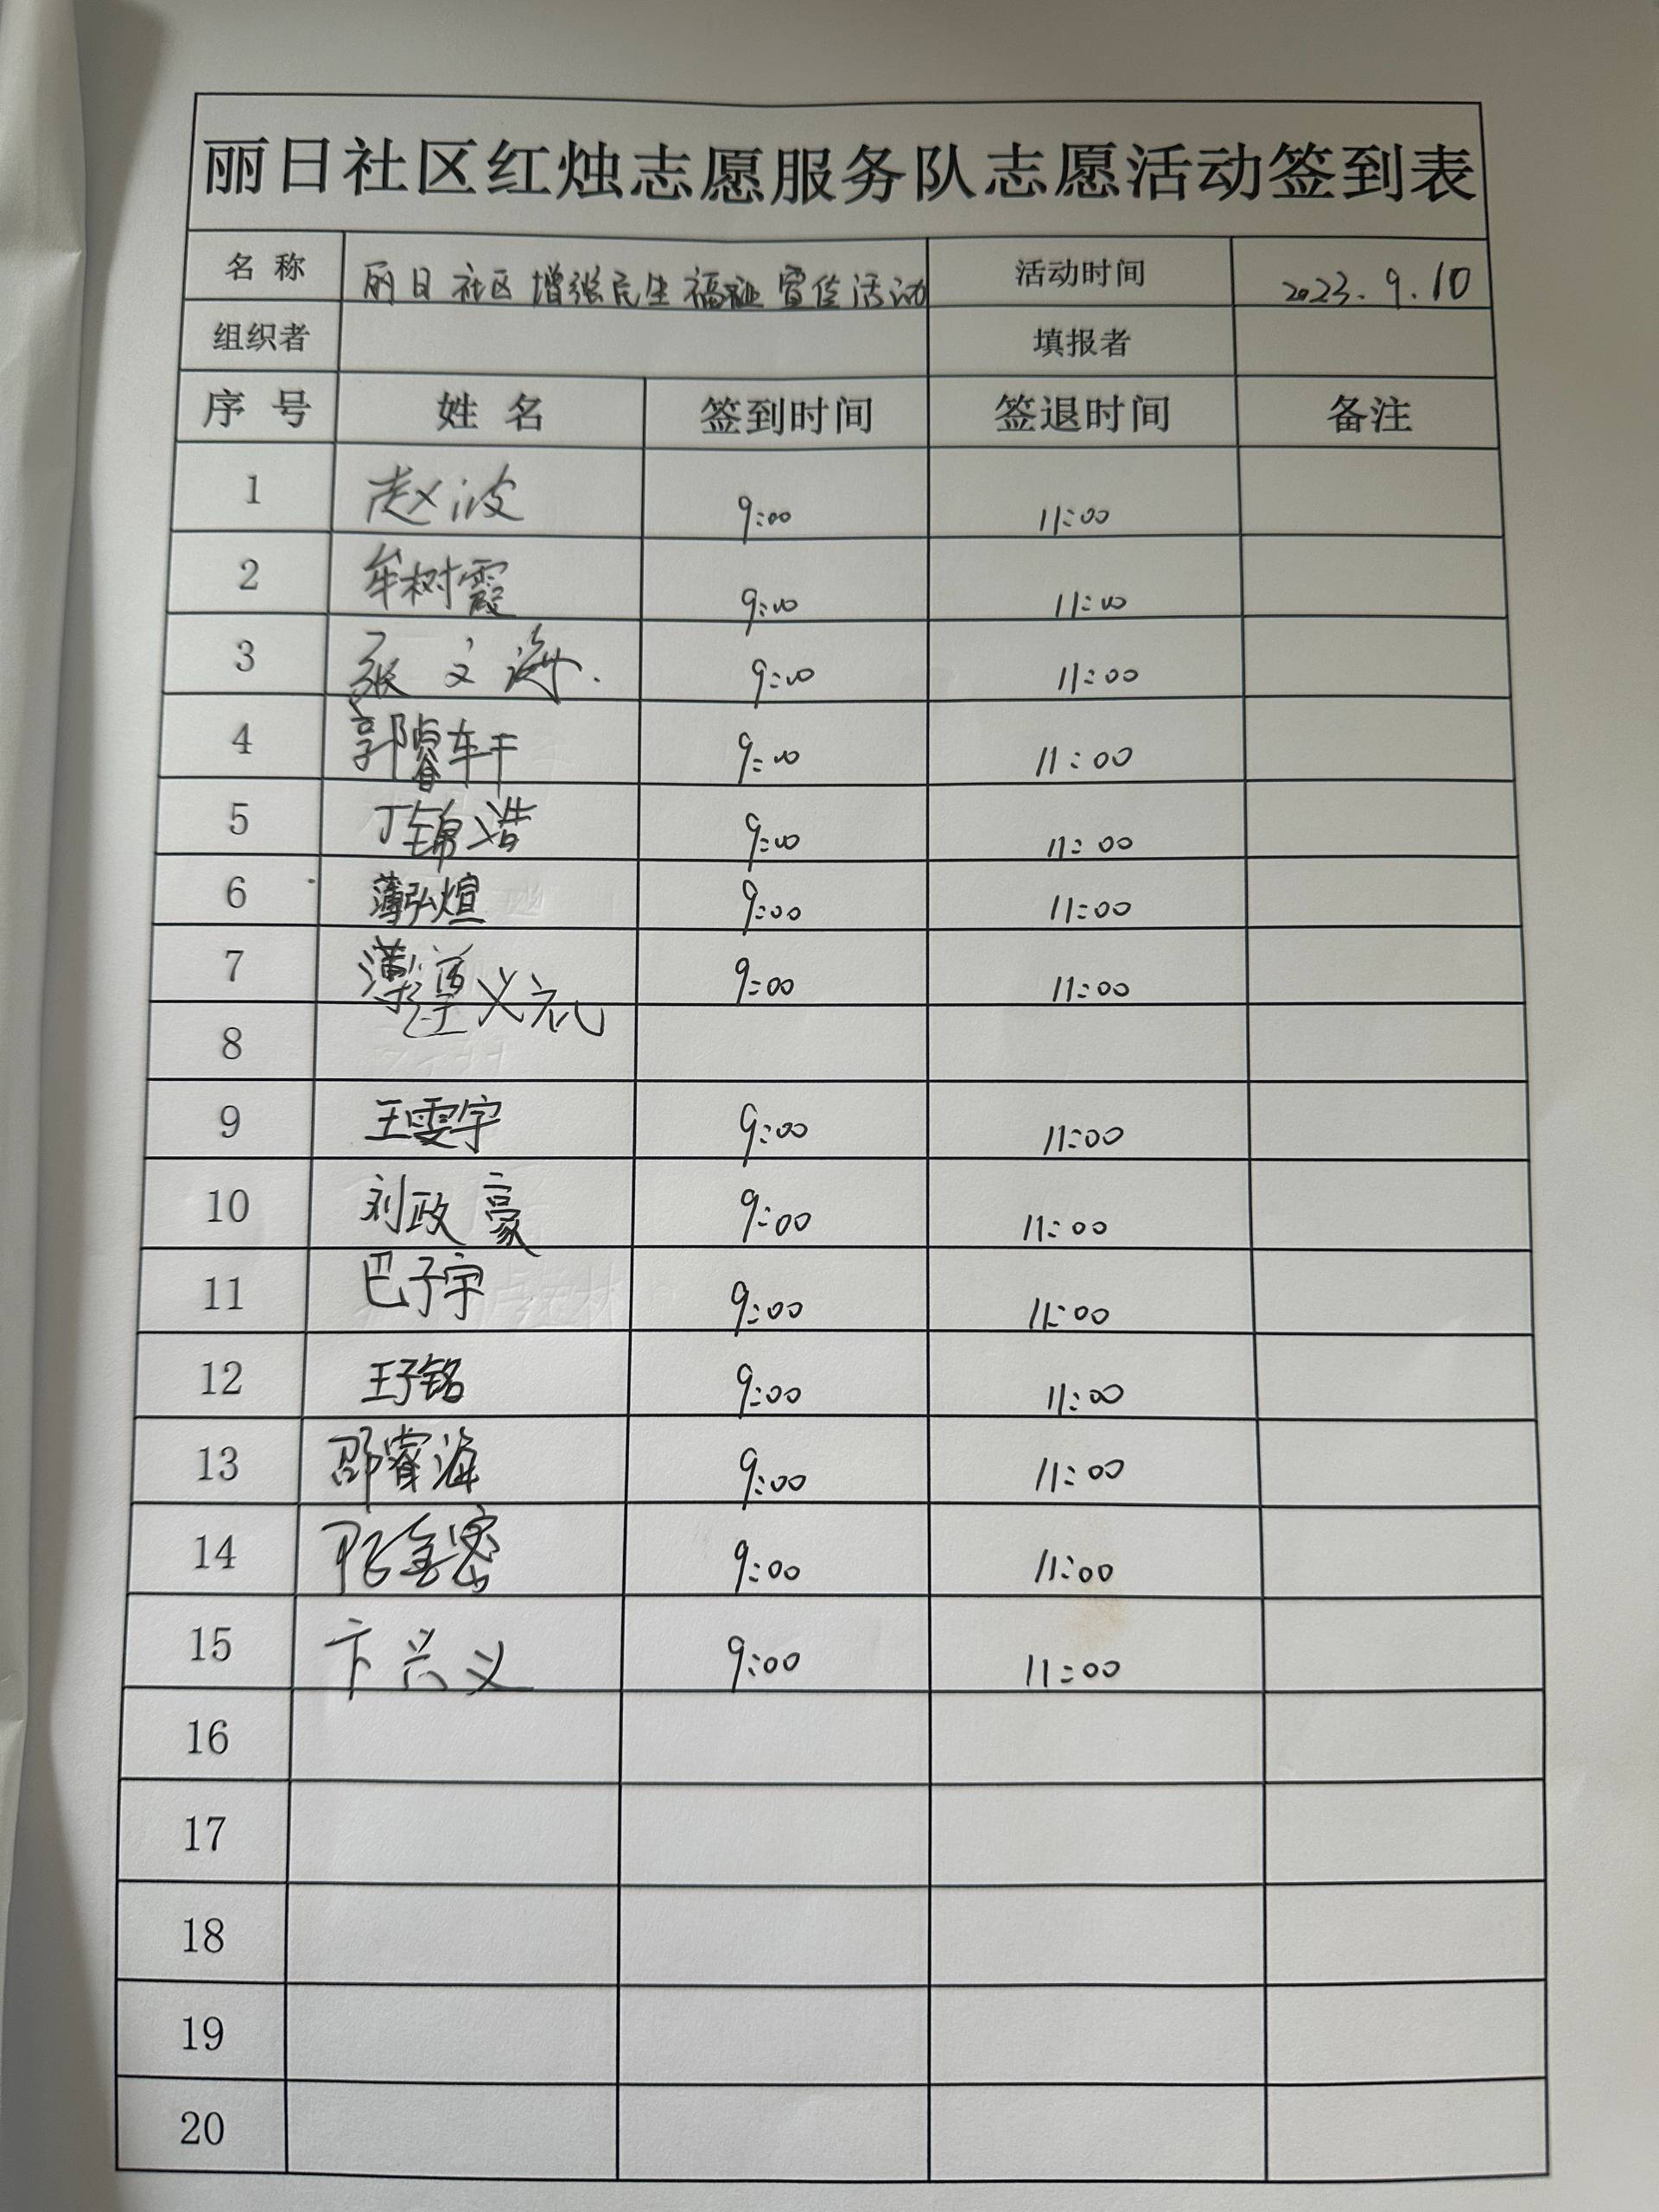 丽日社区红烛志愿服务队志愿活动签到表
名 称 丽日社区增强民生福祉宣传活动 活动时间 2023.9.10
组织者 填报者
序 号 姓 名 签到时间 签退时间 备注
1 赵波 9:00 11:00
2 牟树霞 9:00 11:00
3 张文海. 9:00 11:00
4 郭睿轩 9:00 11:00
5 丁锦浩 9:00 11:00
6 薄弘煊 9:00 11:00
7 9:00 11:00
8
9 王雯宇 9:00 11:00
10 刘政豪 9:00 11:00
11 巴子宇 9:00 11:00
12 王子铭 9:00 11:00
13 邵睿海 9:00 11:00
14 9:00 11:00
15 卞兴义 9:00 11:00
16
17
18
19
20